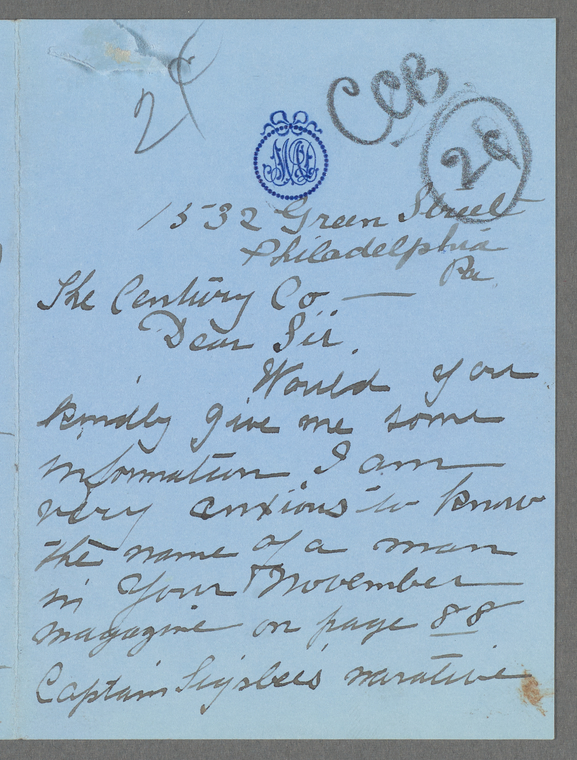 2c
CCB
2c
1532 Green Street
Philadelphia
Pa
The Century Co —
Dear Sir.
Would you
kindly give me some
information I am
very anxious to know
the name of a man
in your November
magazine on page 88
Captain Sigsbee's narative